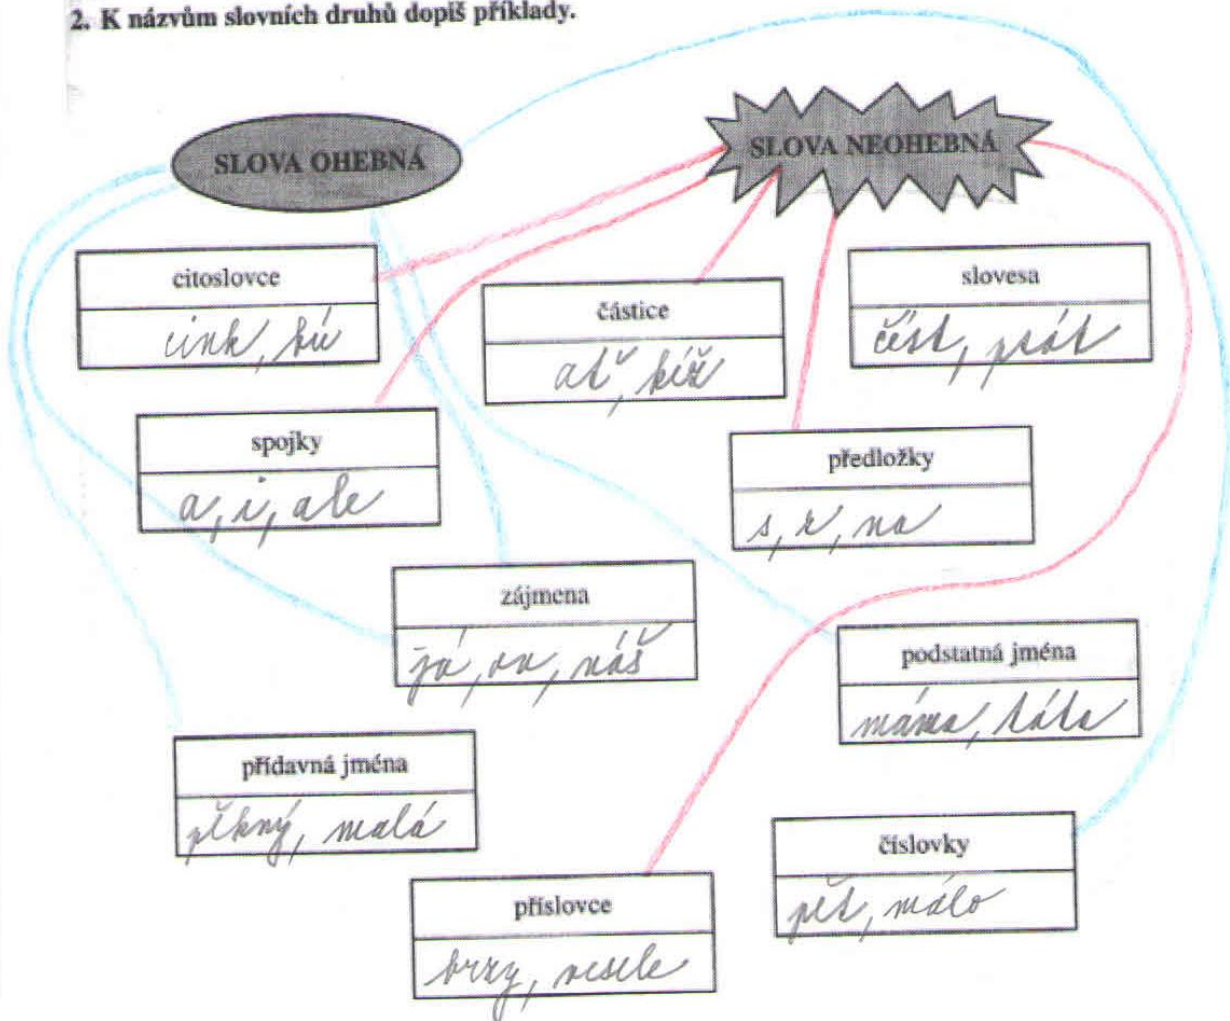 2. K názvům slovních druhů dopiš příklady.
SLOVA OHEBNÁ
SLOVA NEOHEBNÁ
citoslovce
cink, kú
částice
ať, kéž
slovesa
číst, psát
spojky
a, i, ale
předložky
s, z, na
zájmena
já, on, náš
podstatná jména
máma, táta
přídavná jména
pěkný, malá
číslovky
pět, málo
příslovce
brzy, vesele